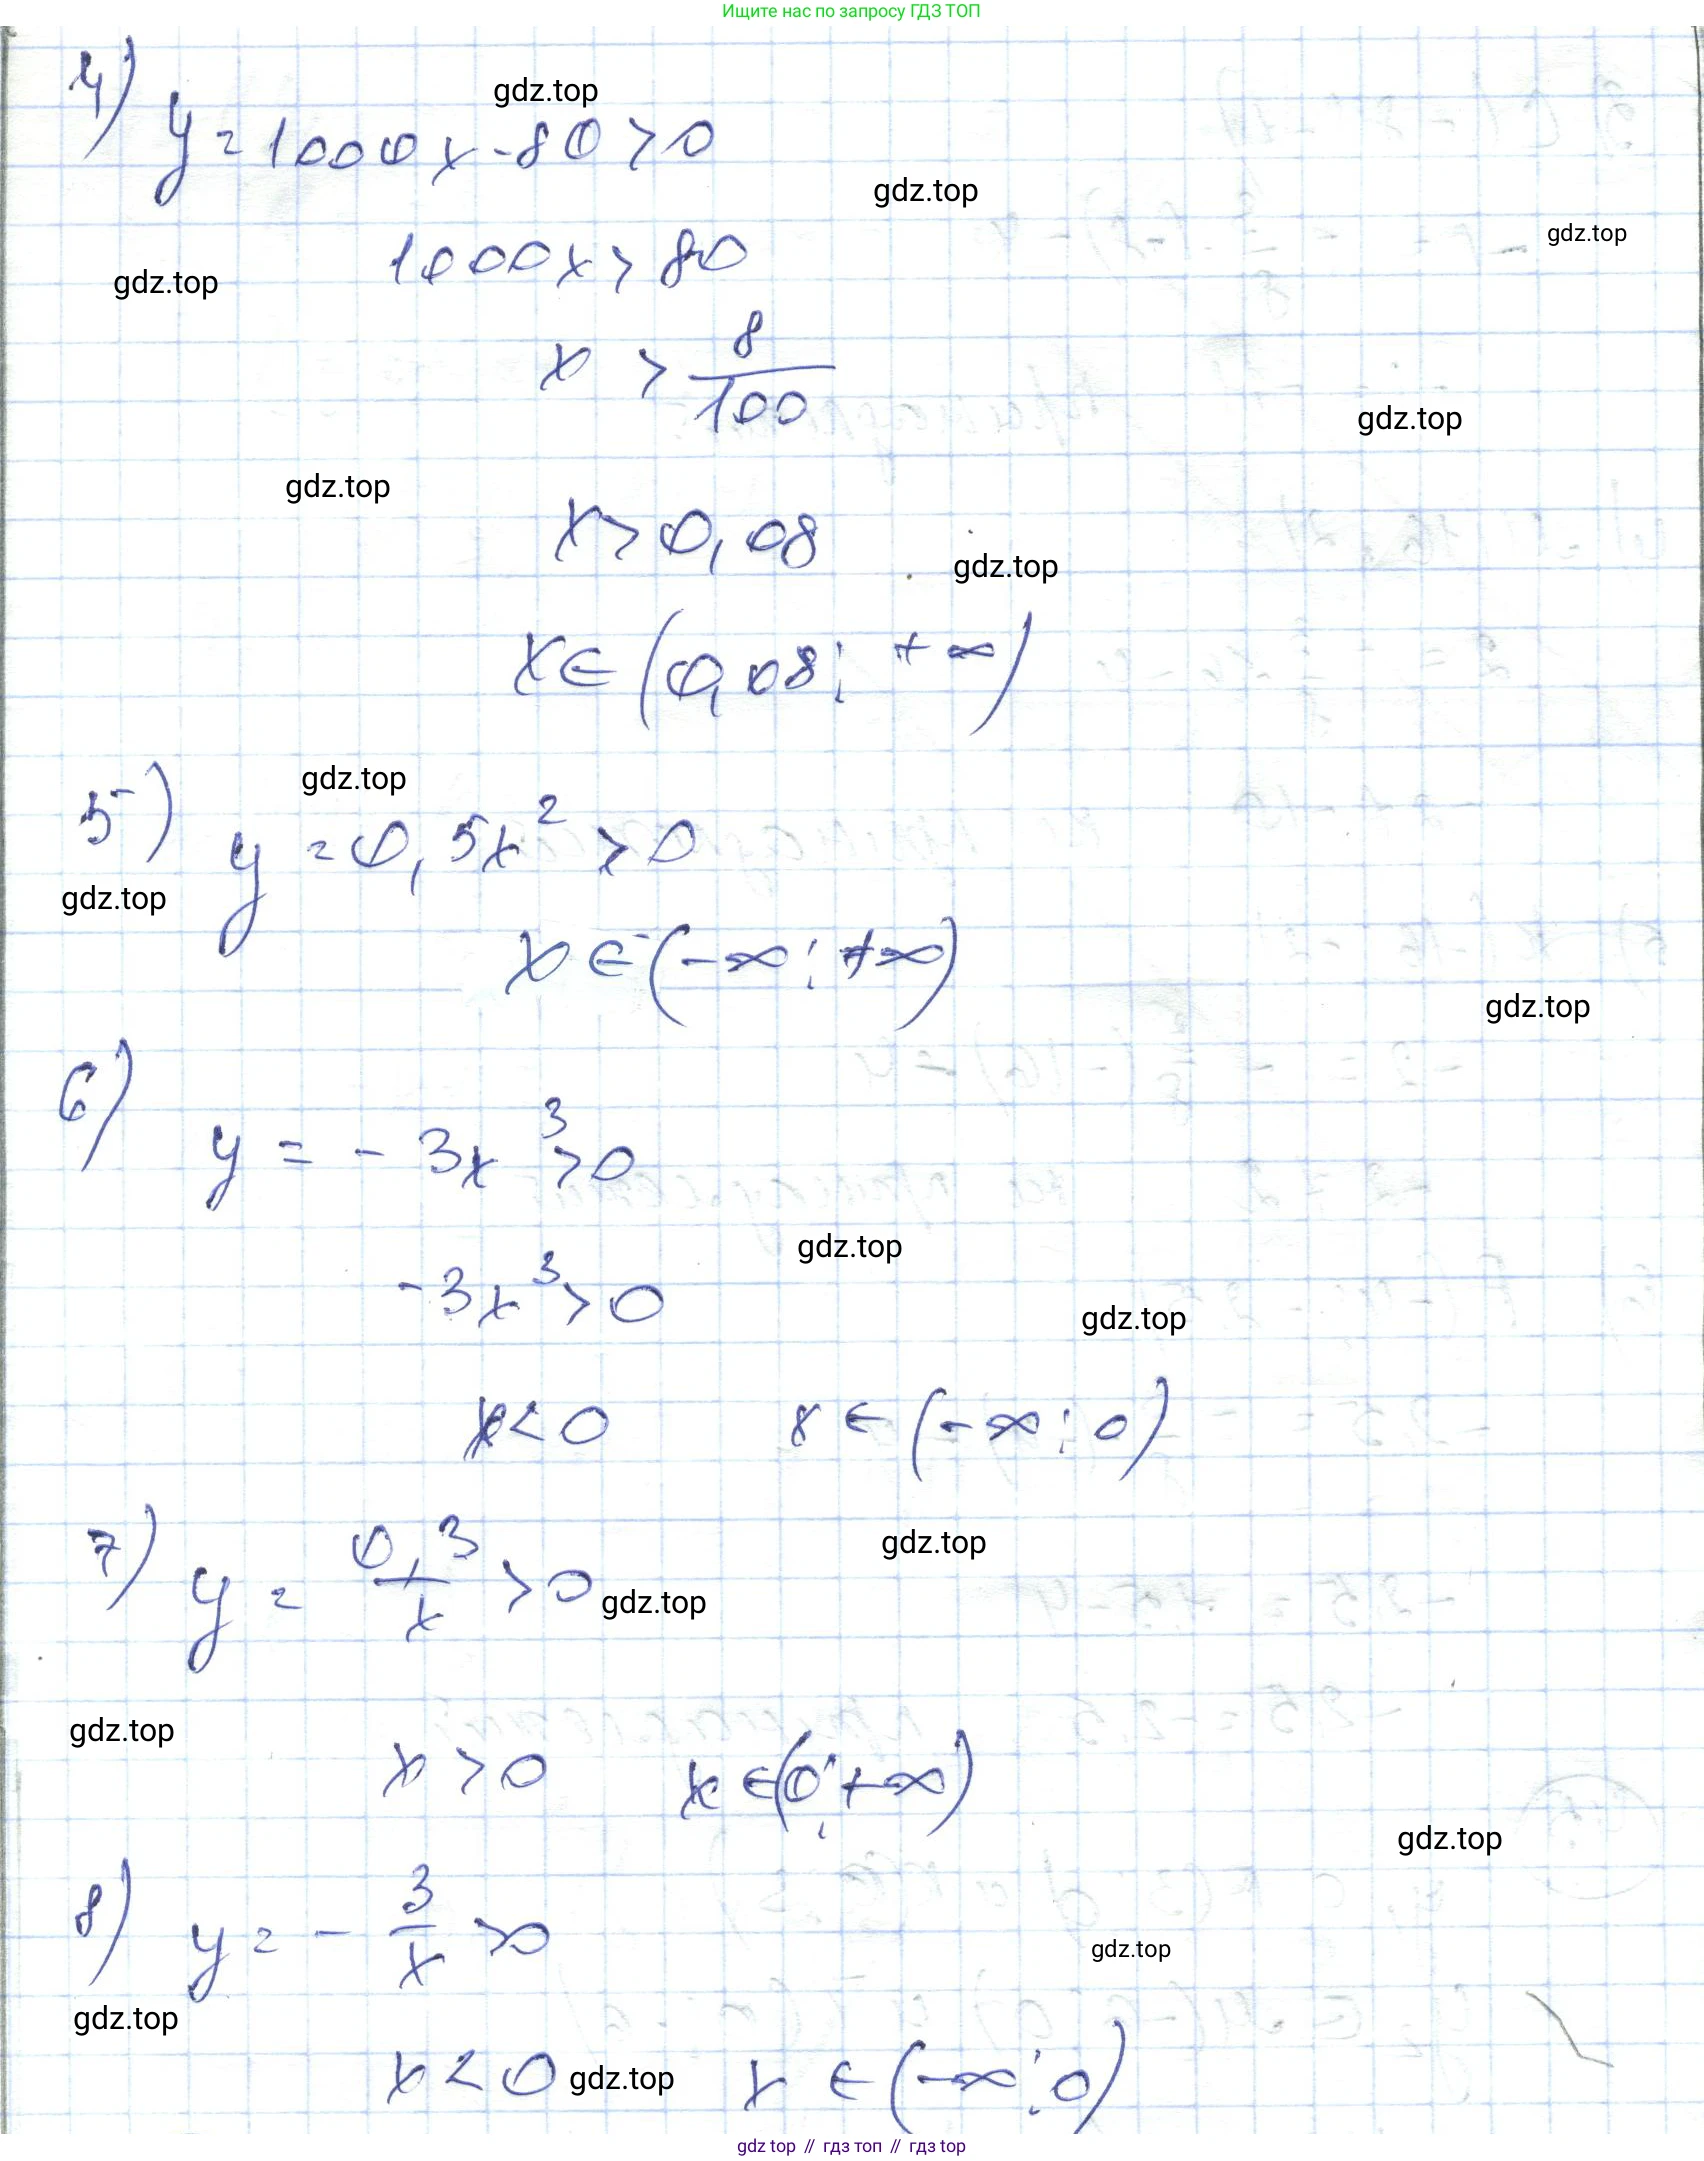 Ищите нас по запросу ГДЗ ТОП
4)
gdz.top
y = 1000x - 80 > 0
gdz.top
gdz.top
1000x > 80
gdz.top
x > 8/100
gdz.top
gdz.top
x > 0,08
gdz.top
x ∈ (0,08; +∞)
gdz.top
5) y = 0,5x² > 0
gdz.top
x ∈ (-∞; +∞)
gdz.top
6)
y = - 3x³ > 0
gdz.top
-3x³ > 0
gdz.top
x < 0 x ∈ (-∞; 0)
gdz.top
7) y = 0,3/x > 0
gdz.top
gdz.top
x > 0 x ∈ (0; +∞)
gdz.top
8) y = - 3/x > 0
gdz.top
gdz.top
x < 0 gdz.top x ∈ (-∞; 0)
gdz top // гдз топ // гдз top